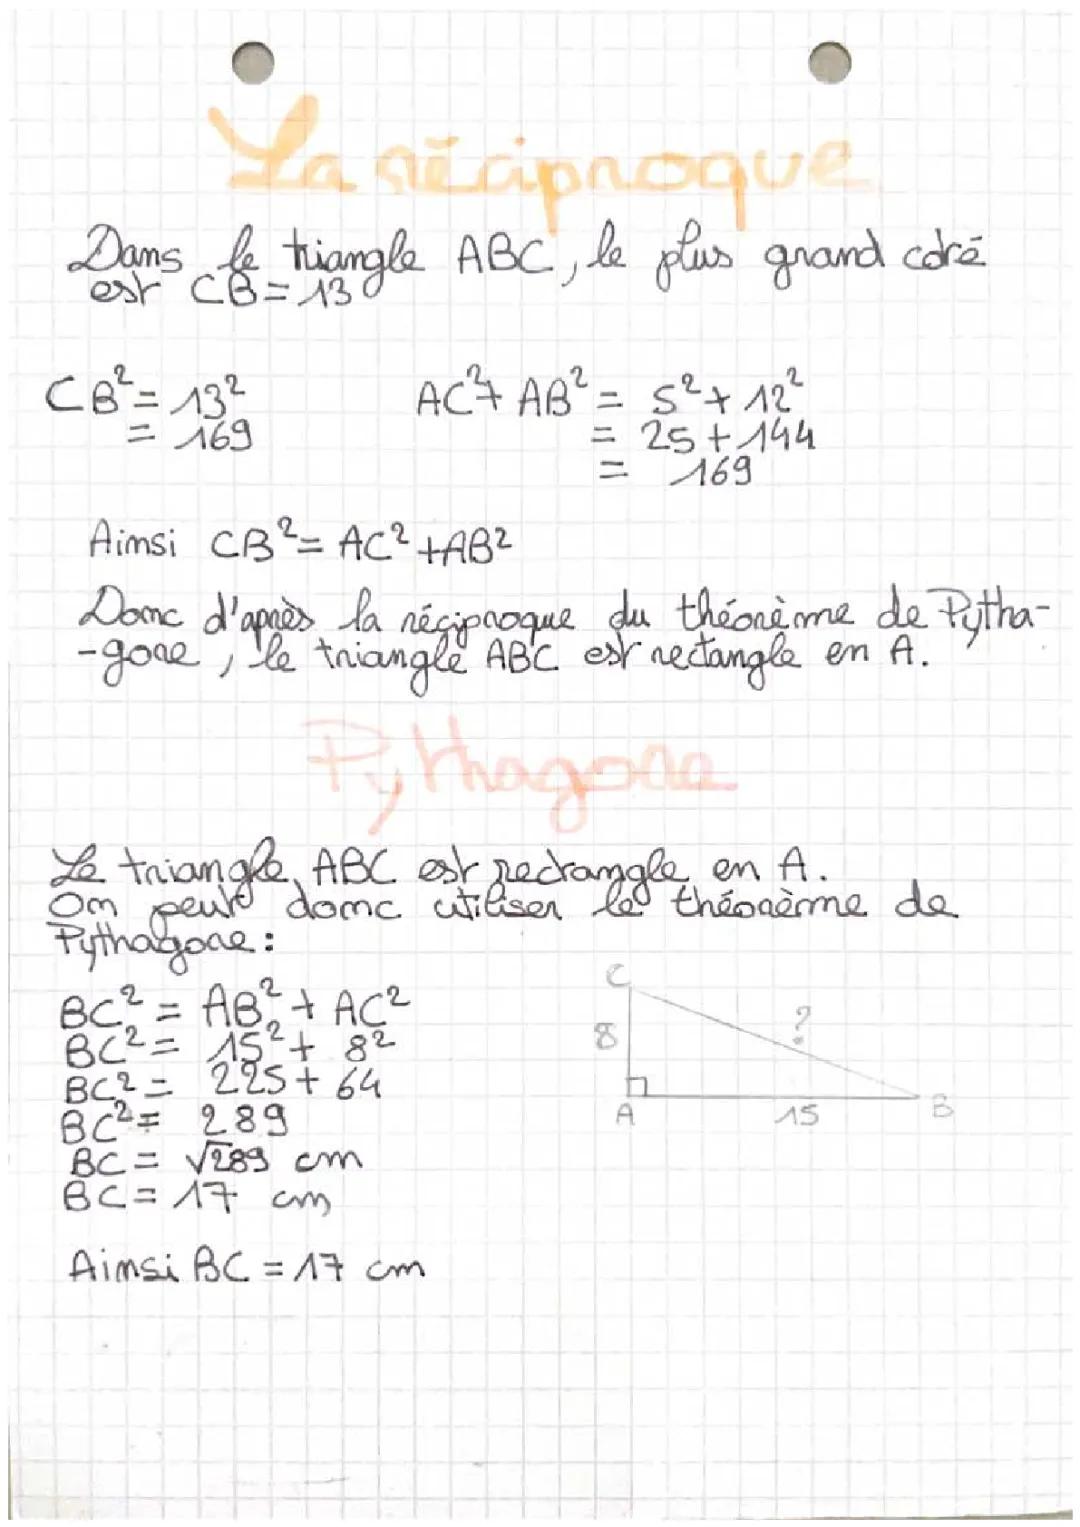 La réciproque
Dans le triangle ABC, le plus grand côté
est CB = 13
CB² = 13²
= 169
AC² + AB² = 5² + 12²
= 25 + 144
= 169
Ainsi CB² = AC² + AB²
Donc d'après la réciproque du théorème de Pytha-
-gore, le triangle ABC est rectangle en A.
Pythagore
Le triangle ABC est rectangle en A.
On peut donc utiliser le théorème de
Pythagore :
BC² = AB² + AC²
BC² = 15² + 8²
BC² = 225 + 64
BC² = 289
BC = √289 cm
BC = 17 cm
C
8
?
A
15
B
Ainsi BC = 17 cm